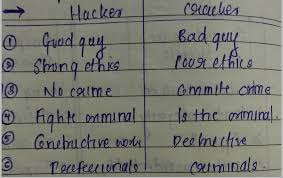 → Hacker Cracker
① Good guy Bad guy
② Strong ethics Poor ethics
③ No crime Commite crime
④ Fights criminal Is the criminal.
⑤ Constructive work Destructive
⑥ Professionals Criminals.